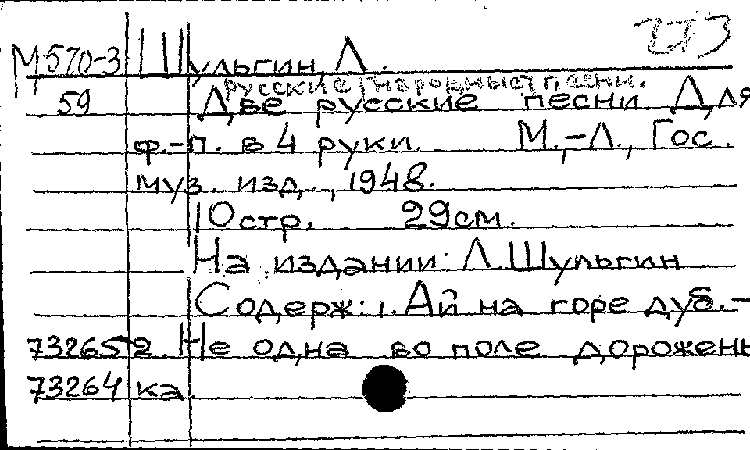 273
М570-3 Шульгин, Л.
русские народные песни.
59 Две русские песни Для
ф.-п. в 4 руки. М.-Л., Гос.
муз. изд., 1948.
10стр. 29см.
На издании: Л.Шульгин
Содерж: 1. Ай на горе дуб.-
73265 2. Не одна во поле дорожень
73264 ка